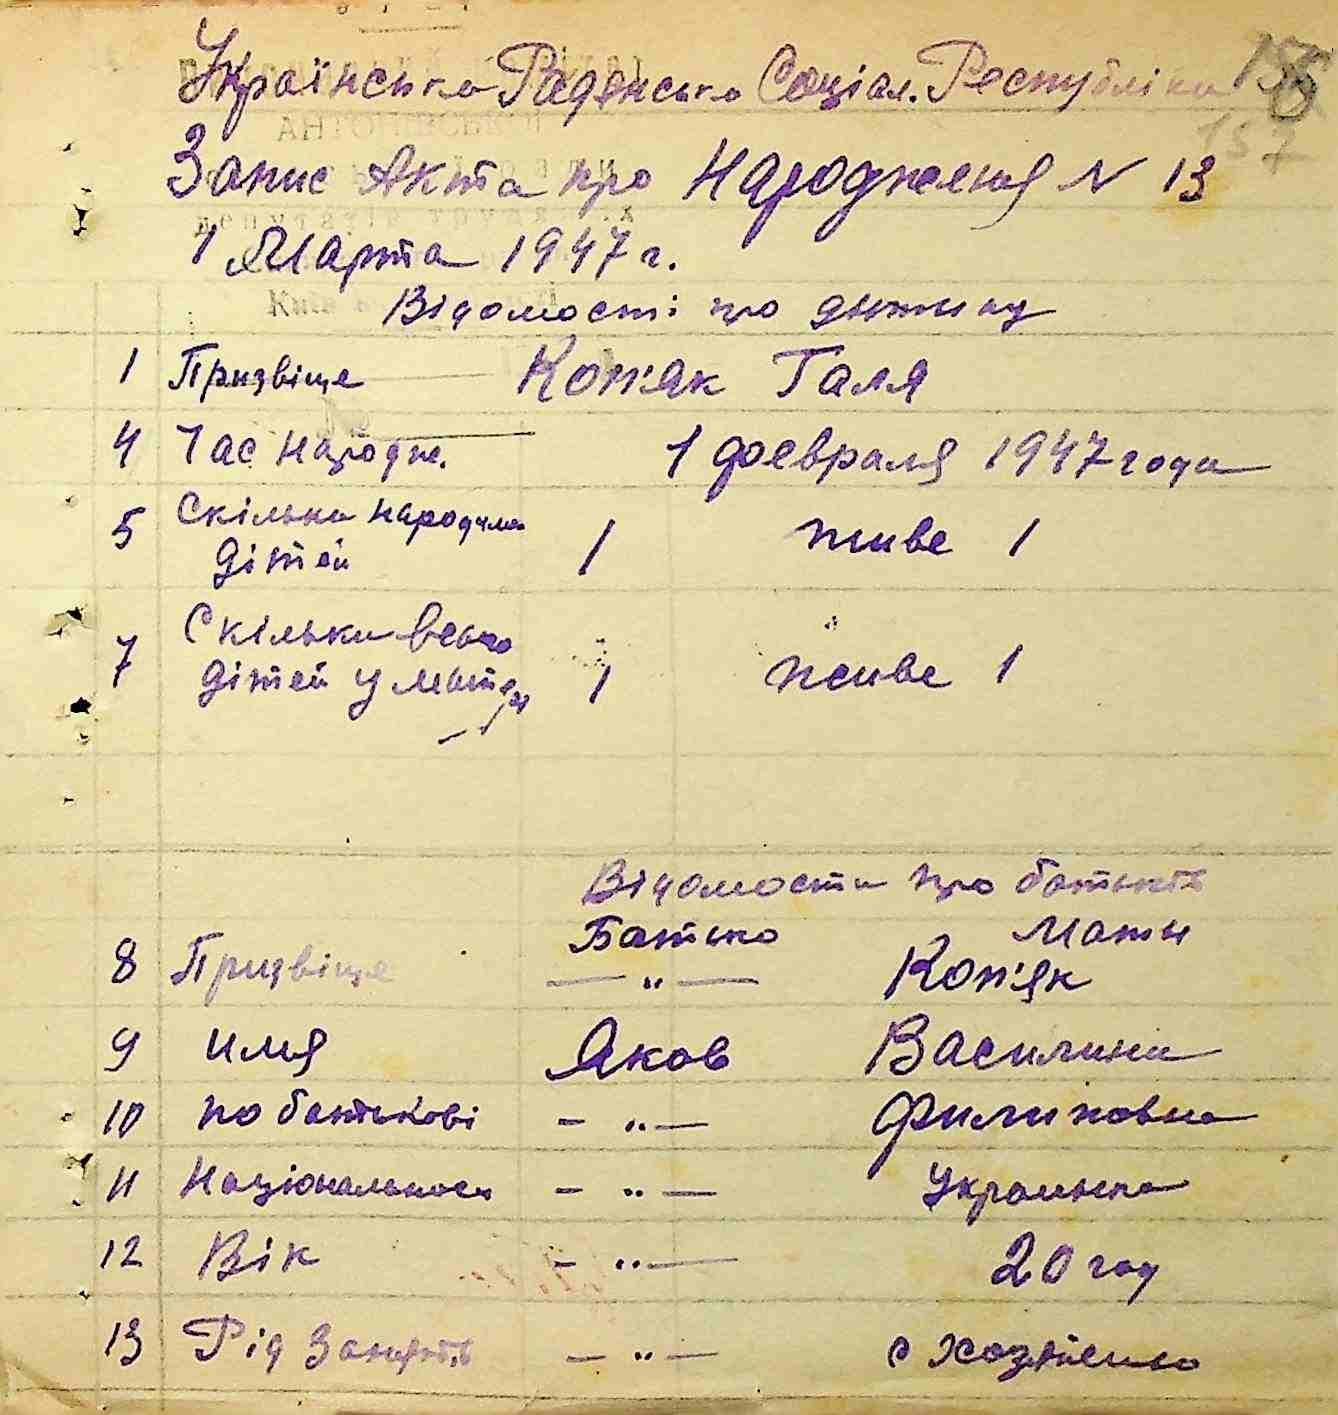 Українська Раденська Соціал. Республіка
Запис Акта про Народження N 13
1 Марта 1947 г.
Відомості про дитину
1 Призвіще Коп'як Галя
4 Час Народж. 1 февраля 1947 года
5 Скільки народила
дітей 1 живе 1
7 Скільки всього
дітей у матери 1 живе 1
Відомости про батьків
Батько Мати
8 Призвіще — „ — Коп'як
9 имя Яков Василина
10 по батькові — „ — Филиповна
11 Національност — „ — Украинка
12 Вік — „ — 20 год
13 Рід Занять — „ —